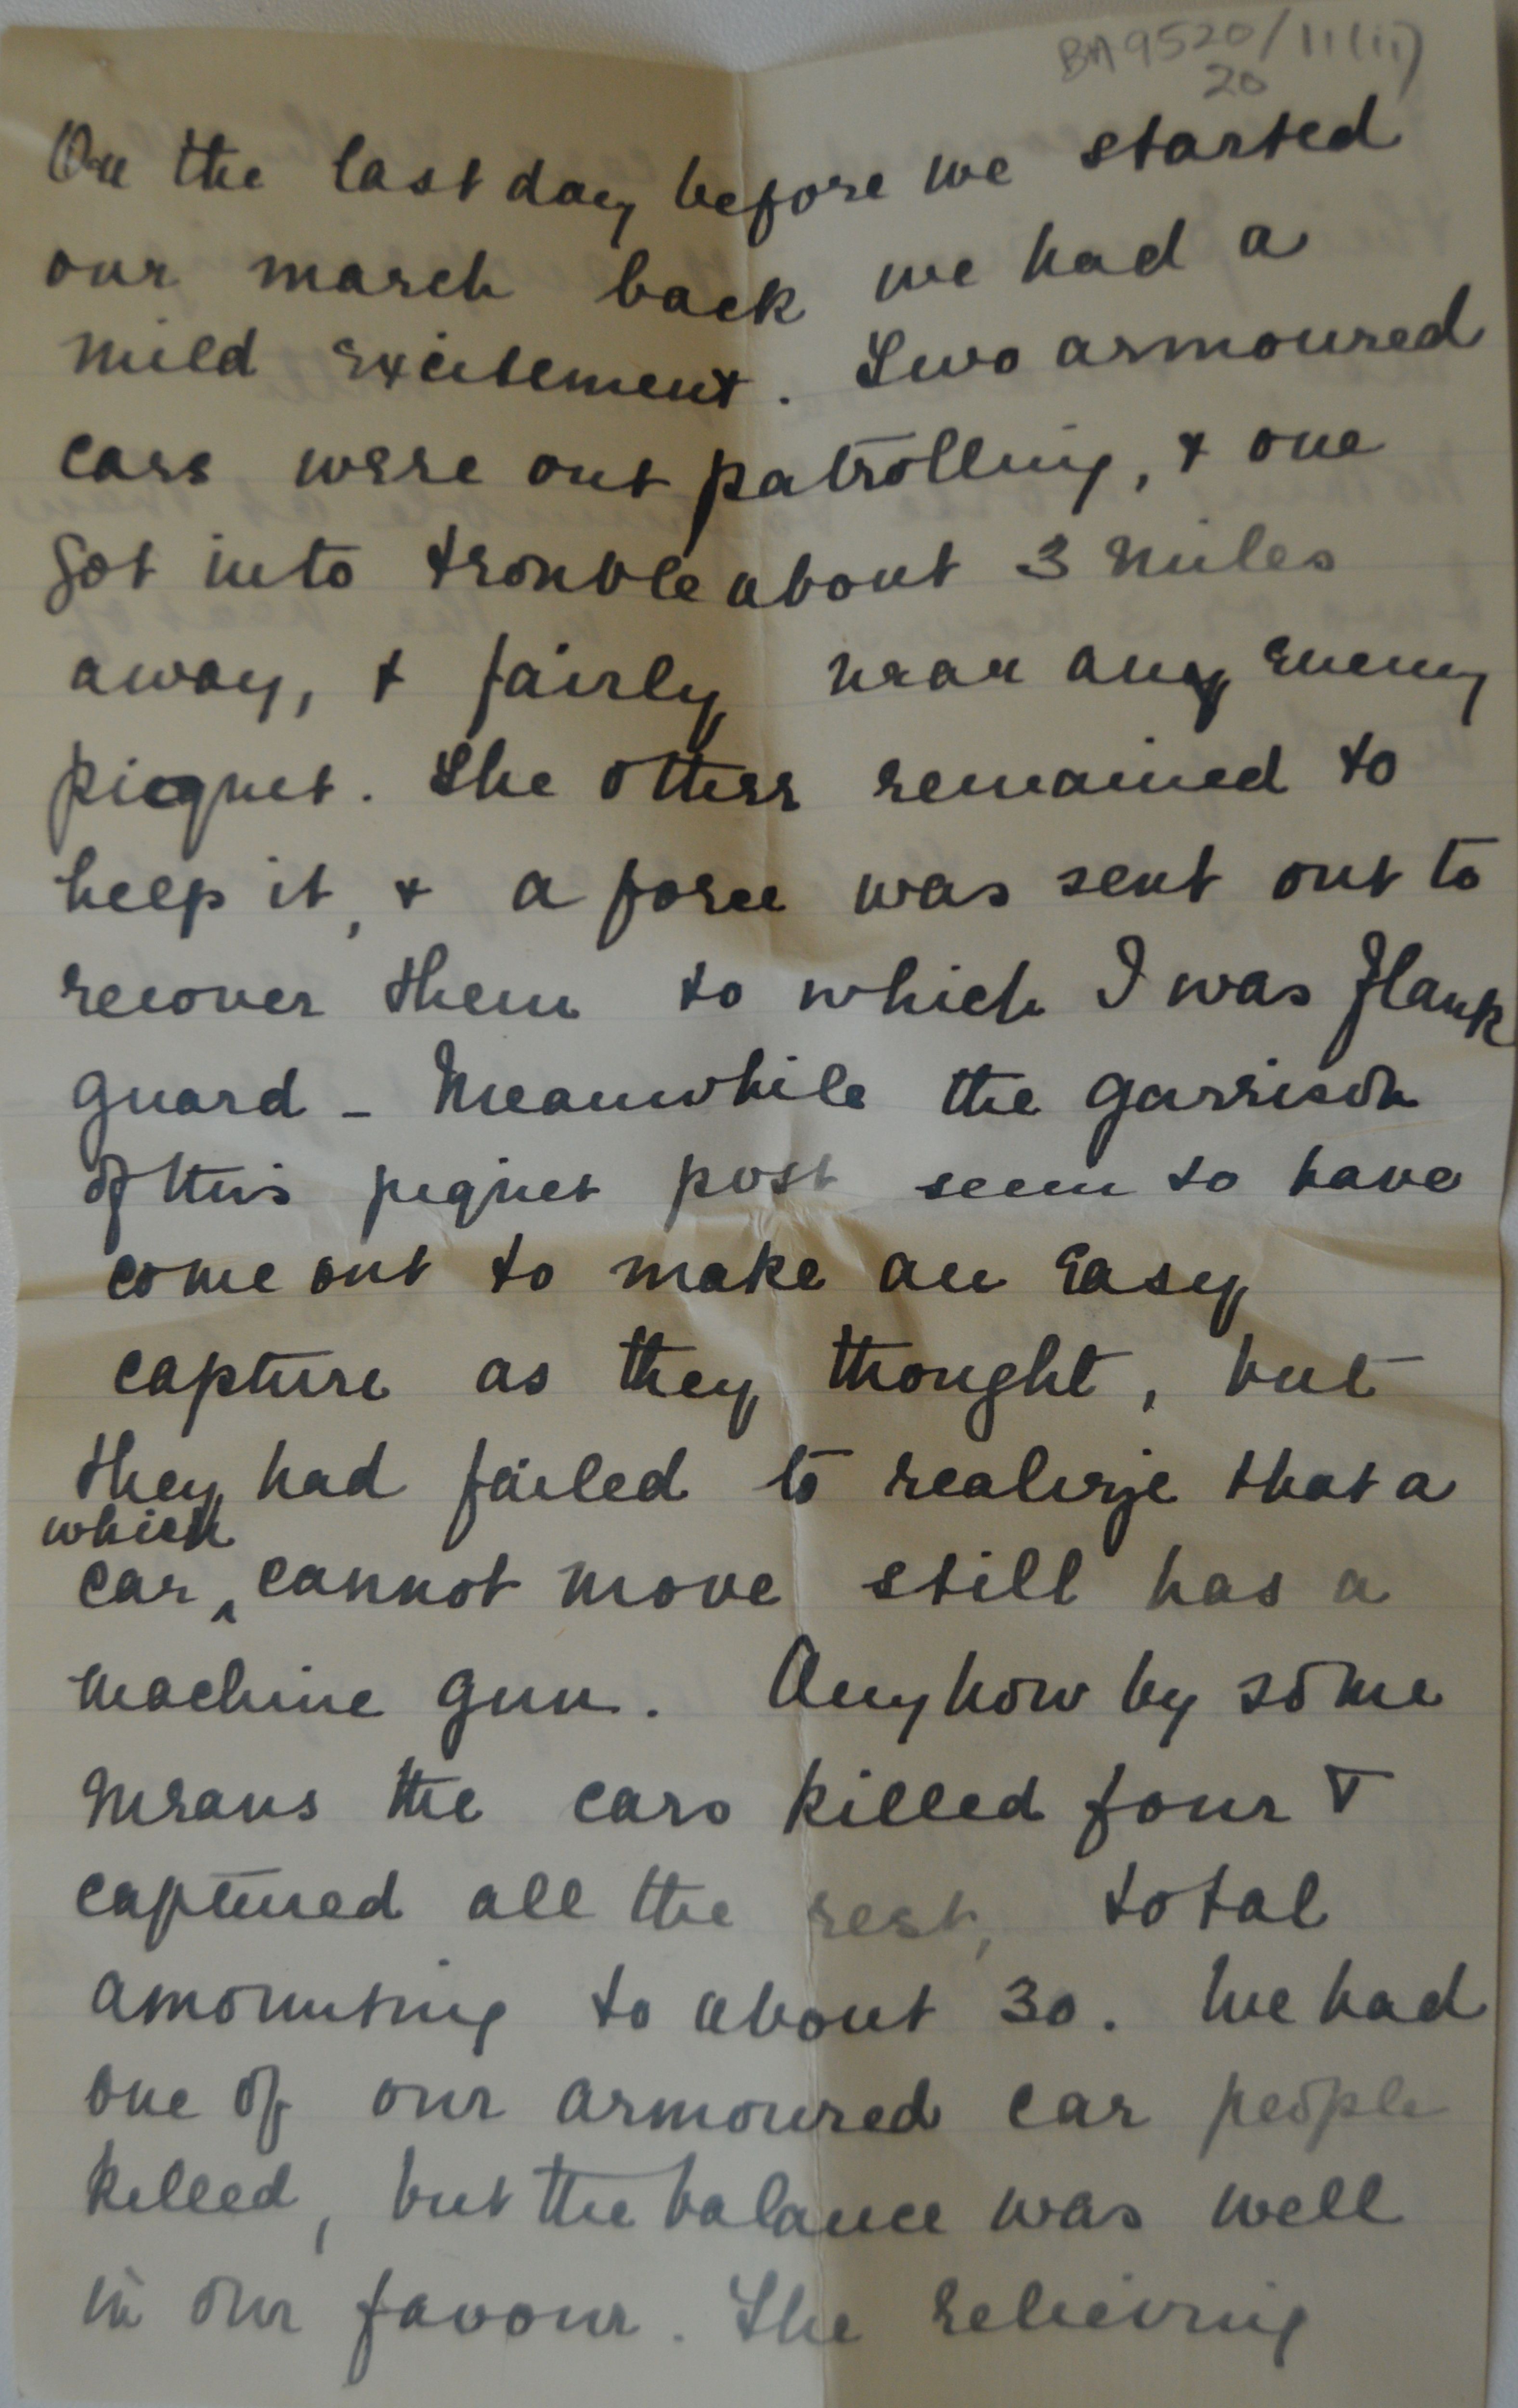 BA9520/11(ii)
20
On the last day before we started
our march back we had a
mild excitement. Two armoured
cars were out patrolling, & one
got into trouble about 3 miles
away, & fairly near any enemy
picquet. The other remained to
help it, & a force was sent out to
recover them to which I was flank
guard - Meanwhile the garrison
of this piquet post seem to have
come out to make an easy
capture as they thought, but
they had failed to realize that a
which
car ^ cannot move still has a
machine gun. Anyhow by some
means the cars killed four &
captured all the rest, total
amounting to about 30. We had
one of our armoured car people
killed, but the balance was well
in our favour. The relieving